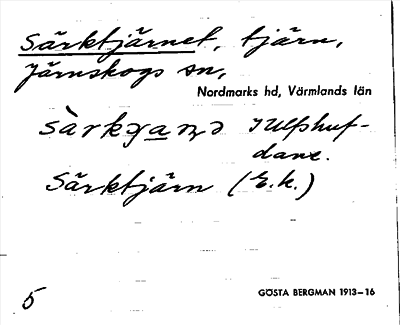 Särktjärnet, tjärn,
Järnskogs sn,
Nordmarks hd, Värmlands län
Ulfshuf-
dane.
Särktjärn (E.k.)
5
GÖSTA BERGMAN 1913–16